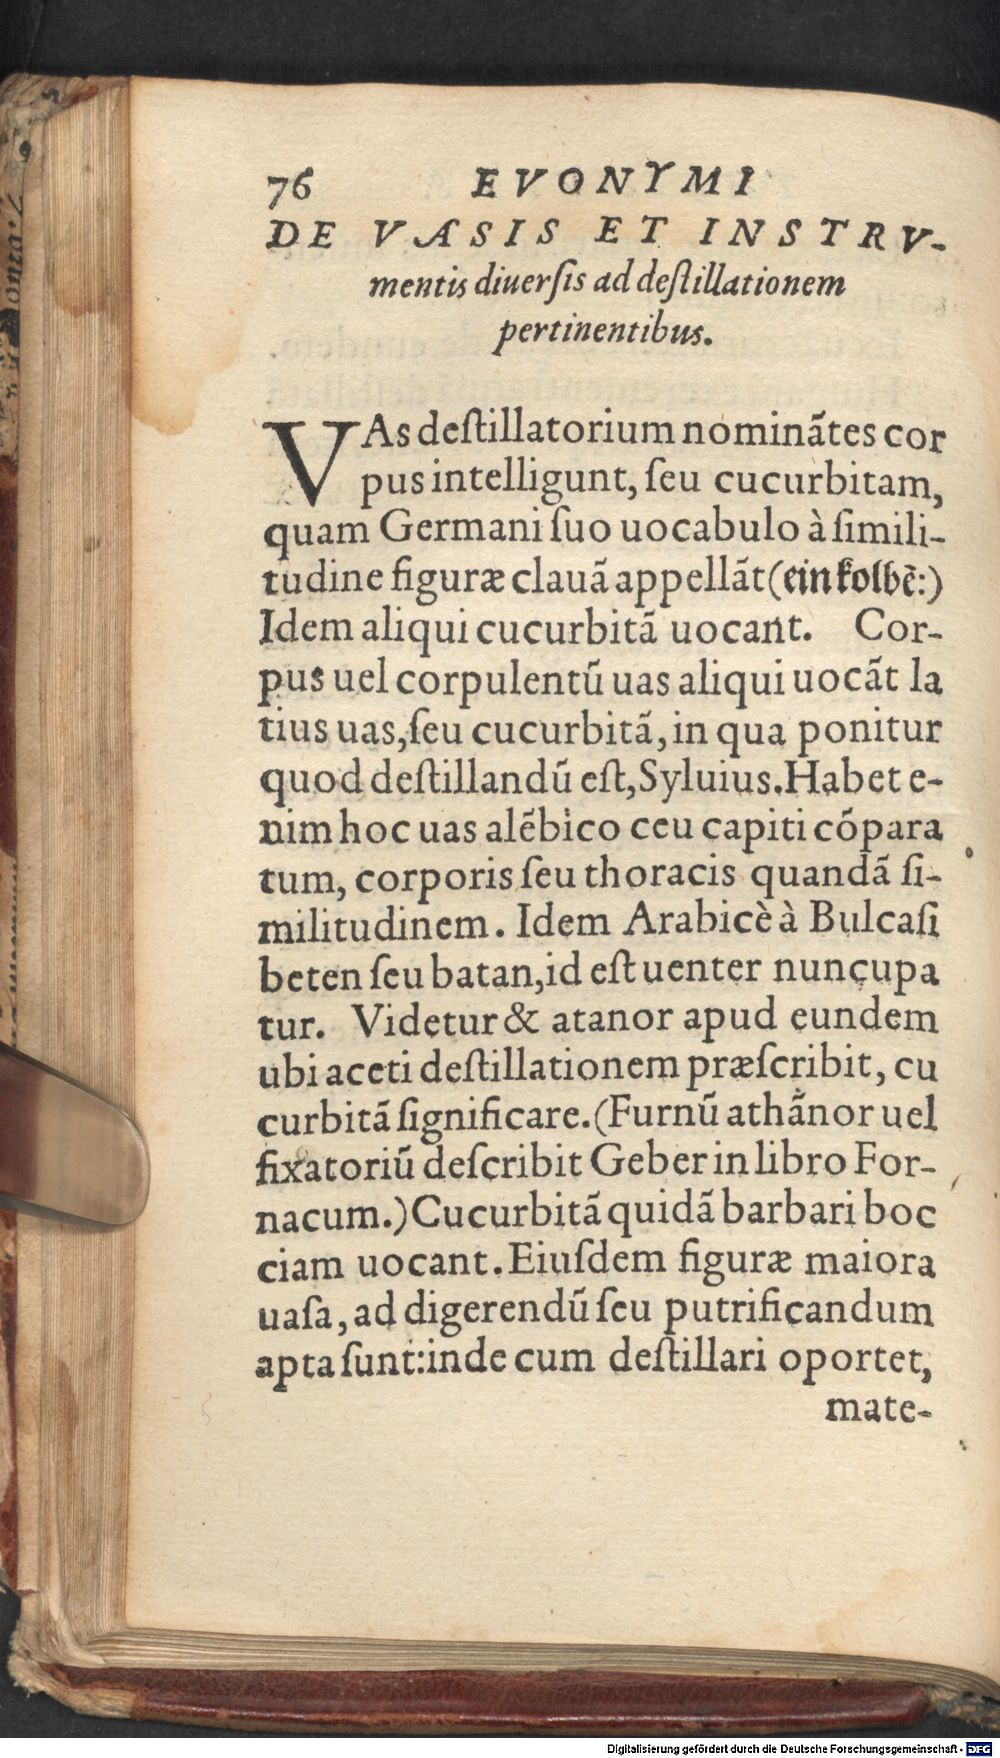 76 EVONYMI
DE VASIS ET INSTRV-
mentis diuerſis ad deſtillationem
pertinentibus.
VAs deſtillatorium nominãtes cor
pus intelligunt, ſeu cucurbitam,
quam Germani ſuo uocabulo à ſimili-
tudine figuræ clauã appellãt (ein kolbẽ:)
Idem aliqui cucurbitã uocant. Cor-
pus uel corpulentũ uas aliqui uocãt la
tius uas, ſeu cucurbitã, in qua ponitur
quod deſtillandũ eſt, Syluius. Habet e-
nim hoc uas alẽbico ceu capiti cõpara
tum, corporis ſeu thoracis quandã ſi-
militudinem. Idem Arabicè à Bulcaſi
beten ſeu batan, id eſt uenter nuncupa
tur. Videtur & atanor apud eundem
ubi aceti deſtillationem præſcribit, cu
curbitã ſignificare. (Furnũ athãnor uel
fixatoriũ deſcribit Geber in libro For-
nacum.) Cucurbitã quidã barbari boc
ciam uocant. Eiuſdem figuræ maiora
uaſa, ad digerendũ ſeu putrificandum
apta ſunt: inde cum deſtillari oportet,
mate-
Digitalisierung gefördert durch die Deutsche Forschungsgemeinschaft - DFG